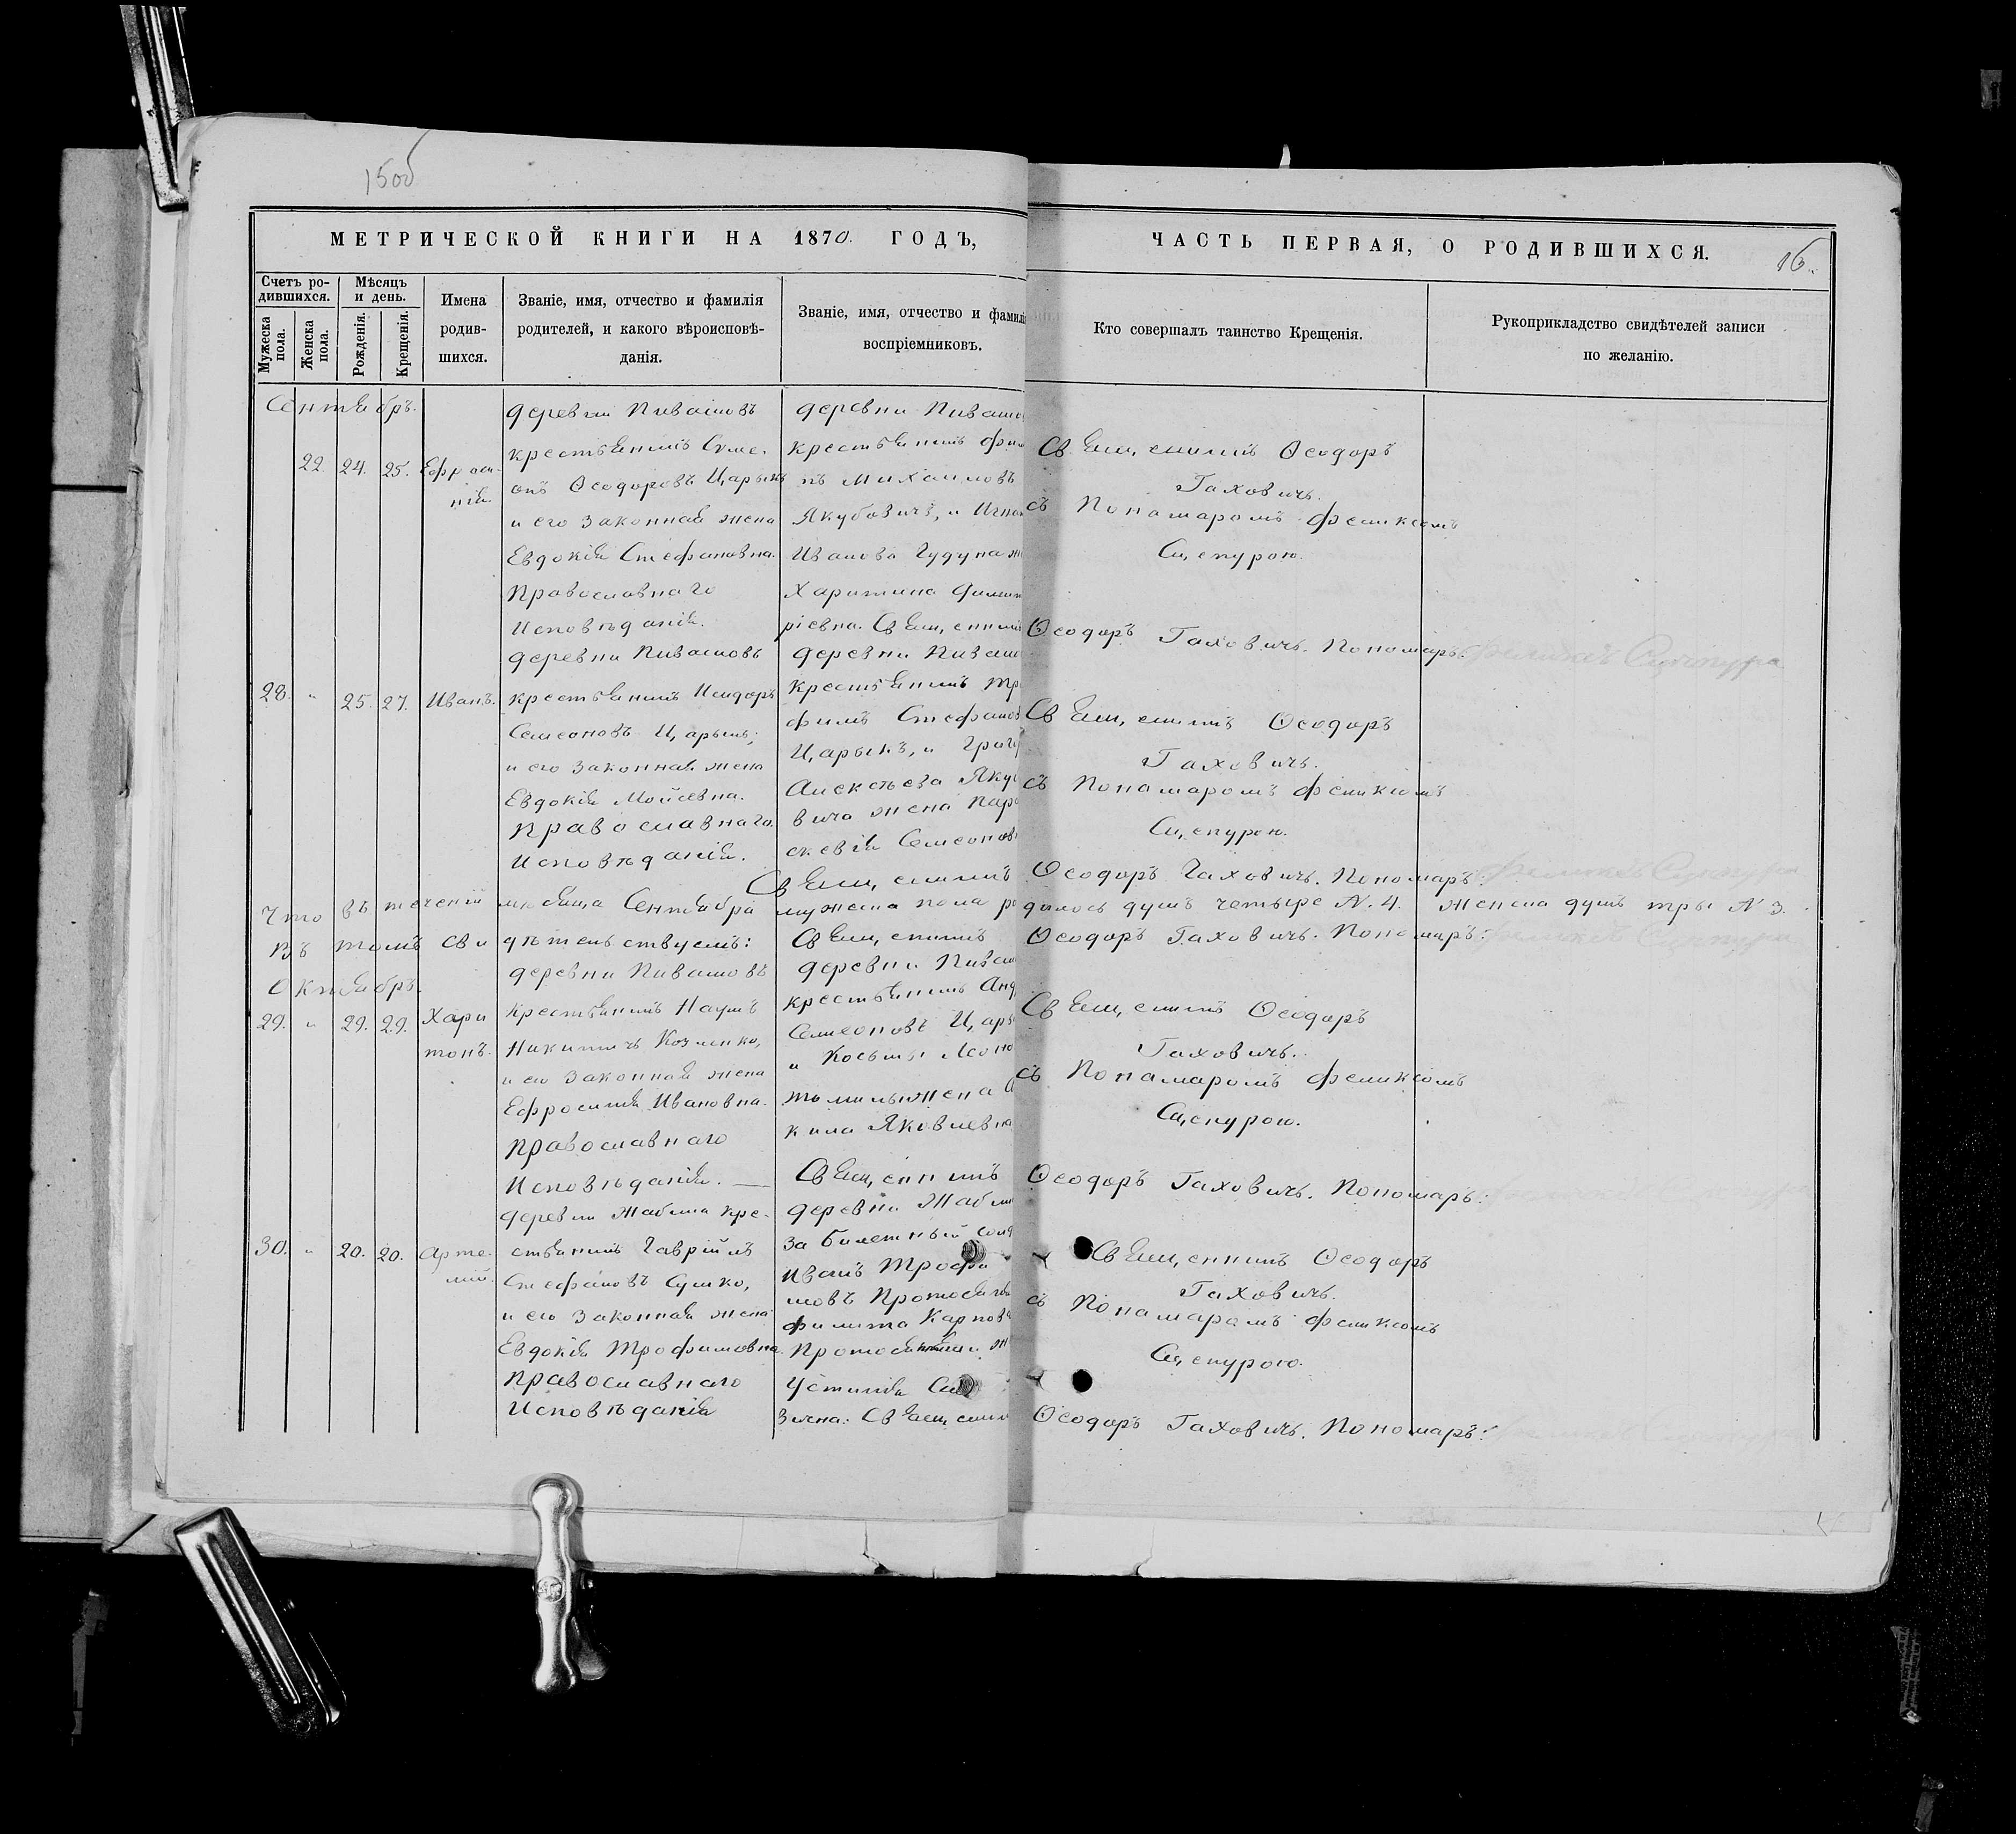 150б
МЕТРИЧЕСКОЙ КНИГИ НА 1870. ГОДЪ,
ЧАСТЬ ПЕРВАЯ, О РОДИВШИХСЯ.
16
Счетъ ро-
дившихся.
Мужеска пола.
Женска пола.
Мѣсяцъ
и день.
Рожденія.
Крещенія.
Имена
родив-
шихся.
Званіе, имя, отчество и фамилія
родителей, и какого вѣроисповѣ-
данія.
Званіе, имя, отчество и фамилі
воспріемниковъ.
Кто совершалъ таинство Крещенія.
Рукоприкладство свидѣтелей записи
по желанію.
Сентябрь.
22. 24. 25. Ефроси-
нія.
деревни Пивашовъ
крестьянинъ Симе-
онъ Ѳеодоровъ Царыкъ
и его законная жена
Евдокія Стефановна.
Православнаго
Исповѣданія.
деревни Пиваш
крестьянинъ Фи
пъ Михаиловъ
Якубовичъ, и Игна
Иванова Гудуна ж
Харитина Дими
ріевна. Священникъ
Священникъ Ѳеодоръ
Гаховичъ.
съ Пономаромъ Феликсомъ
Сцепурою.
Ѳеодоръ Гаховичъ. Пономаръ:
28. " 25. 27. Иванъ.
деревни Пивашовъ
крестьянинъ Исидоръ
Семеоновъ Царыкъ,
и его законная жена
Евдокія Мойсевна.
Православнаго
Исповѣданія.
деревни Пиваш
крестьянинъ Тр
фимъ Стефанов
Царыкъ, и Григ
Алексѣева Яку
вича жена Пар
скевія Семеонов
Священникъ
Священникъ Ѳеодоръ
Гаховичъ.
съ Пономаромъ Феликсомъ
Сцепурою.
Ѳеодоръ Гаховичъ. Пономаръ:
Что въ теченій мѣсяца Сентября мужеска пола родилось душъ четыре N. 4. женска душъ три N 3.
Въ томъ свидѣтельствуемъ: Священникъ Ѳеодоръ Гаховичъ. Пономаръ:
Октябрь.
29. " 29. 29. Хари
тонъ.
деревни Пивашовъ
крестьянинъ Наумъ
Никитичъ Козленко,
и его законная жена
Ефросинія Ивановна.
Православнаго
Исповѣданія.
деревни Пиваш
крестьянинъ Анд
Семеоновъ Цары
и Косьмы Леоно
жена
Яковлевна
Священникъ
Священникъ Ѳеодоръ
Гаховичъ.
съ Пономаромъ Феликсомъ
Сцепурою.
Ѳеодоръ Гаховичъ. Пономаръ:
30. " 20. 20. Арте-
мій.
деревни Жабина кре-
стьянинъ Гавріилъ
Стефановъ Сушко,
и его законная жена
Евдокія Трофимовна
Православнаго
Исповѣданія
деревни Жаби
за билетный солд
Иванъ Трофи
мовъ
Карпов
Устинія
Священни
Священникъ Ѳеодоръ
Гаховичъ.
съ Пономаромъ Феликсомъ
Сцепурою.
Ѳеодоръ Гаховичъ. Пономаръ: